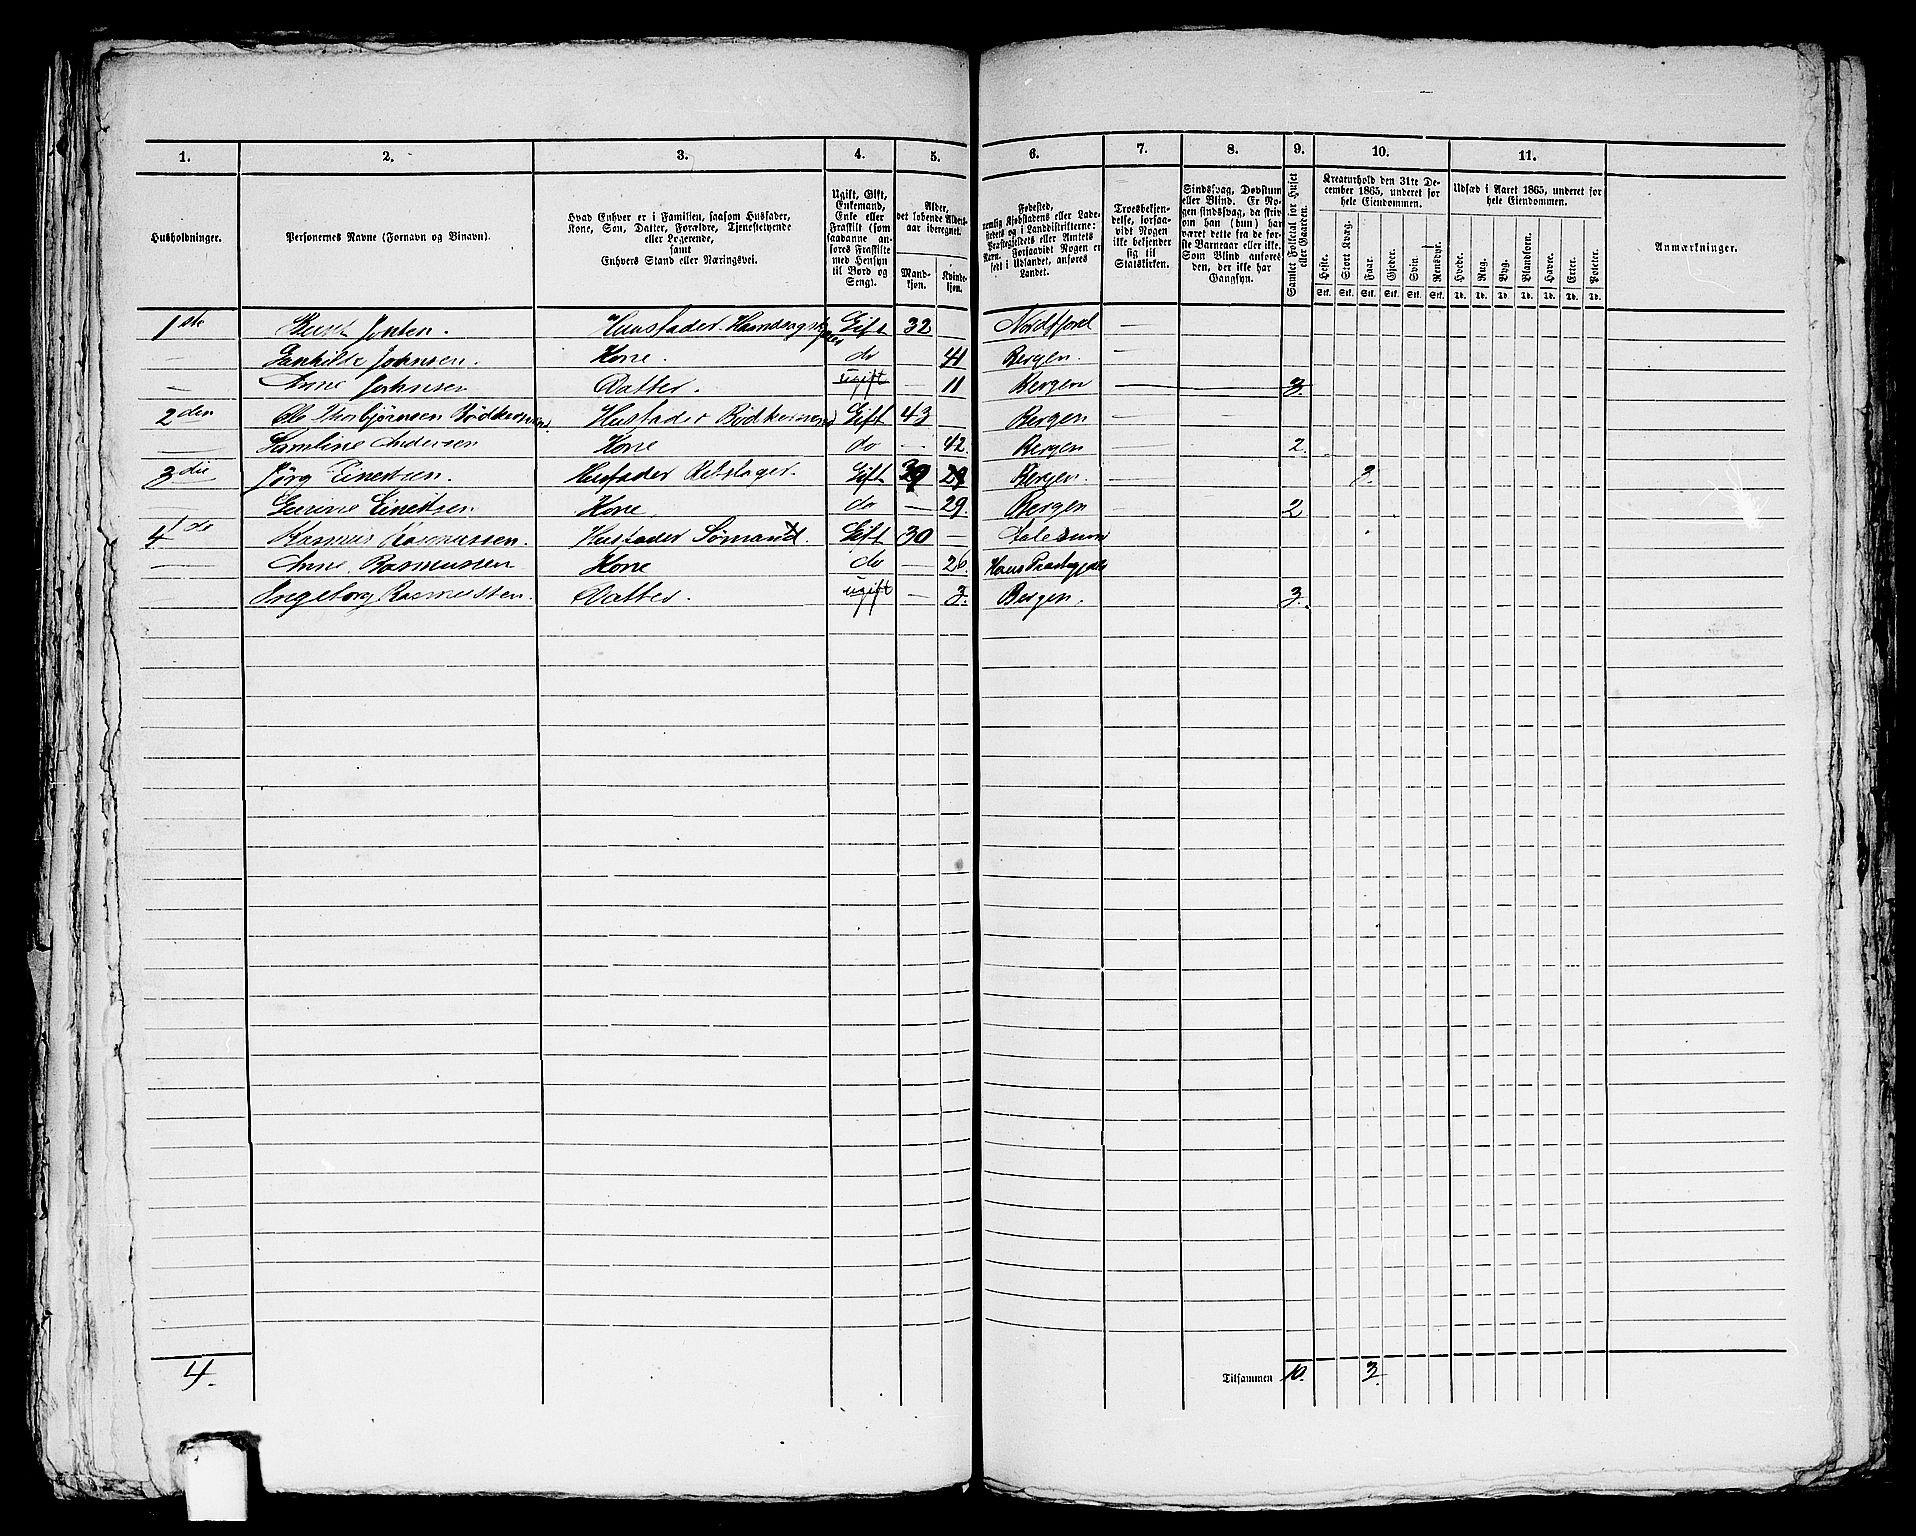 1. 2. 3. 4. 5. 6. 7. 8. 9. 10. 11.
Husholdninger.
Personernes Navne (Fornavn og Binavn).
Hvad Enhver er i Familien, saasom Husfader,
Kone, Søn, Datter, Forældre, Tjenestetyende
eller Logerende,
samt
Enhvers Stand eller Næringsvei.
Ugift, Gift,
Enkemand,
Enke eller
Fraskilt (som
saadanne an-
føres Fraskilte
med Hensyn
til Bord og
Seng).
Alder,
det løbende Alders-
aar iberegnet.
Mand-
kjøn.
Kvinde-
kjøn.
Fødested,
nemlig Kjøbstadens eller Lade-
stedets og i Landdistrikterne:
Præstegjeldets eller Amtets
Navn. Forsaavidt Nogen er
født i Udlandet, anføres
Landet.
Troesbekjen-
delse, forsaa-
vidt Nogen
ikke bekjender
sig til
Statskirken.
Sindssvag, Døvstum
eller Blind. Er No-
gen sindssvag, da skriv
om han (hun) har
været dette fra de før-
ste Barneaar eller ikke.
Som Blind anføres
den, der ikke har
Gangsyn.
Samlet Folketal for Huset
eller Gaarden.
Kreaturhold den 31te De-
cember 1865, underet for
hele Eiendommen.
Heste. Stort Kvæg. Faar. Gjeder. Svin. Rensdyr.
Stk. Stk. Stk. Stk. Stk. Stk.
Udsæd i Aaret 1865, underet for
hele Eiendommen.
Hvede. Rug. Byg. Blandkorn. Havre. Erter. Poteter.
Td. Td. Td. Td. Td. Td. Td.
Anmærkninger.
1ste Johnsen. Husfader. Gift 32 Nordfjord —
— Johnsen. Kone. do 41 Bergen. —
— Anne Johnsen Datter. ugift — 11 Bergen — 3.
2den Ole Thorbjørnsen Bødkersvend Husfader Bødkersvend Gift 43 Bergen —
— Andersen Kone do — 42. Bergen — 2.
3die Husfader Gift 29 Bergen.
— Kone. do — 29. Bergen 2
4de Rasmus Rasmussen. Husfader Sømand. Gift 30 — Aalesund
— Anne Rasmussen Kone do — 26. Haus Præstegjeld
Ingeborg Rasmussen. Datter. ugift — 3. Bergen. 3.
4. Tilsammen 10.